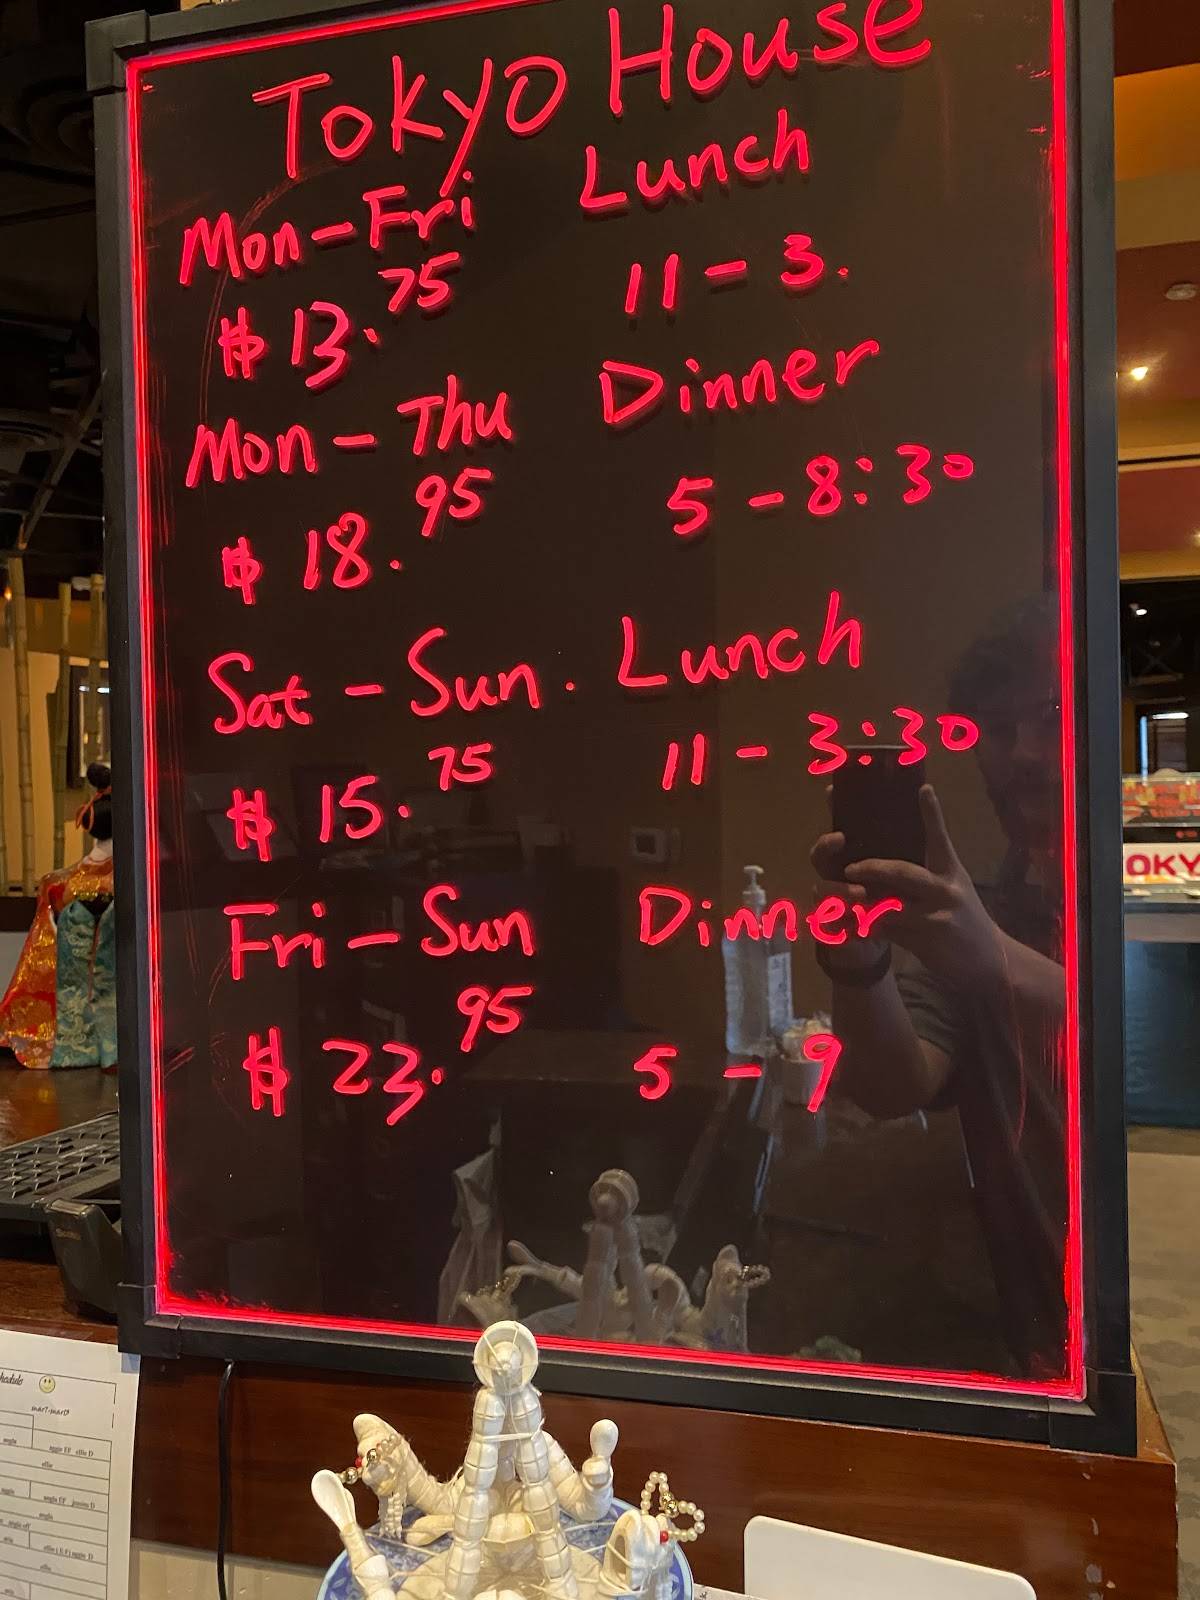 Tokyo House
Mon-Fri Lunch
$13.75 11-3.
Mon-Thu Dinner
$18.95 5-8:30
Sat-Sun. Lunch
$15.75 11-3:30
Fri-Sun Dinner
$23.95 5-9
OKY